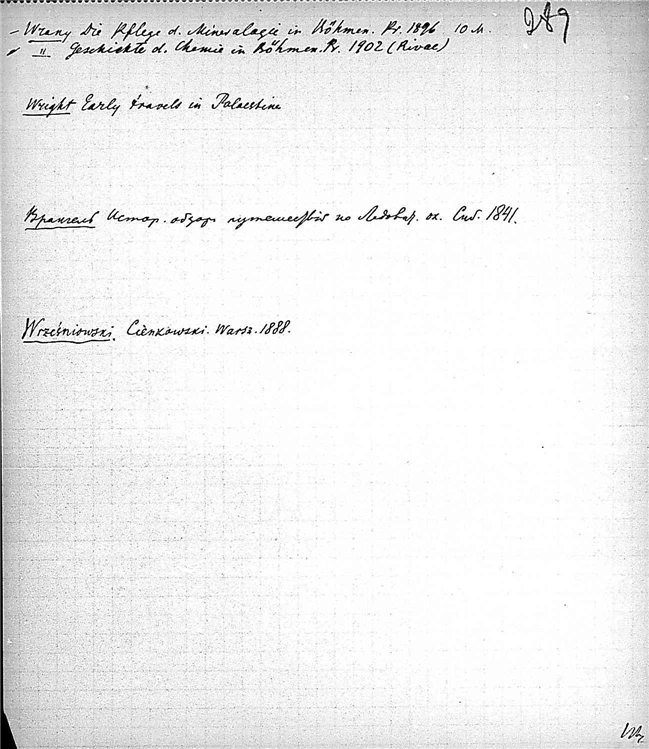 289
– Wrany Die Pflege d. Mineralogie in Böhmen. Pr. 1896 10 M.
" Geschichte d. Chemie in Böhmen. Pr. 1902 (Rivac)
Wright Early travels in Palaestine
Врангель Истор. обзоръ путешествiй по Ледовит. ок. Сиб. 1841.
Wrześniowski. Cienkowski. Warsz. 1888.